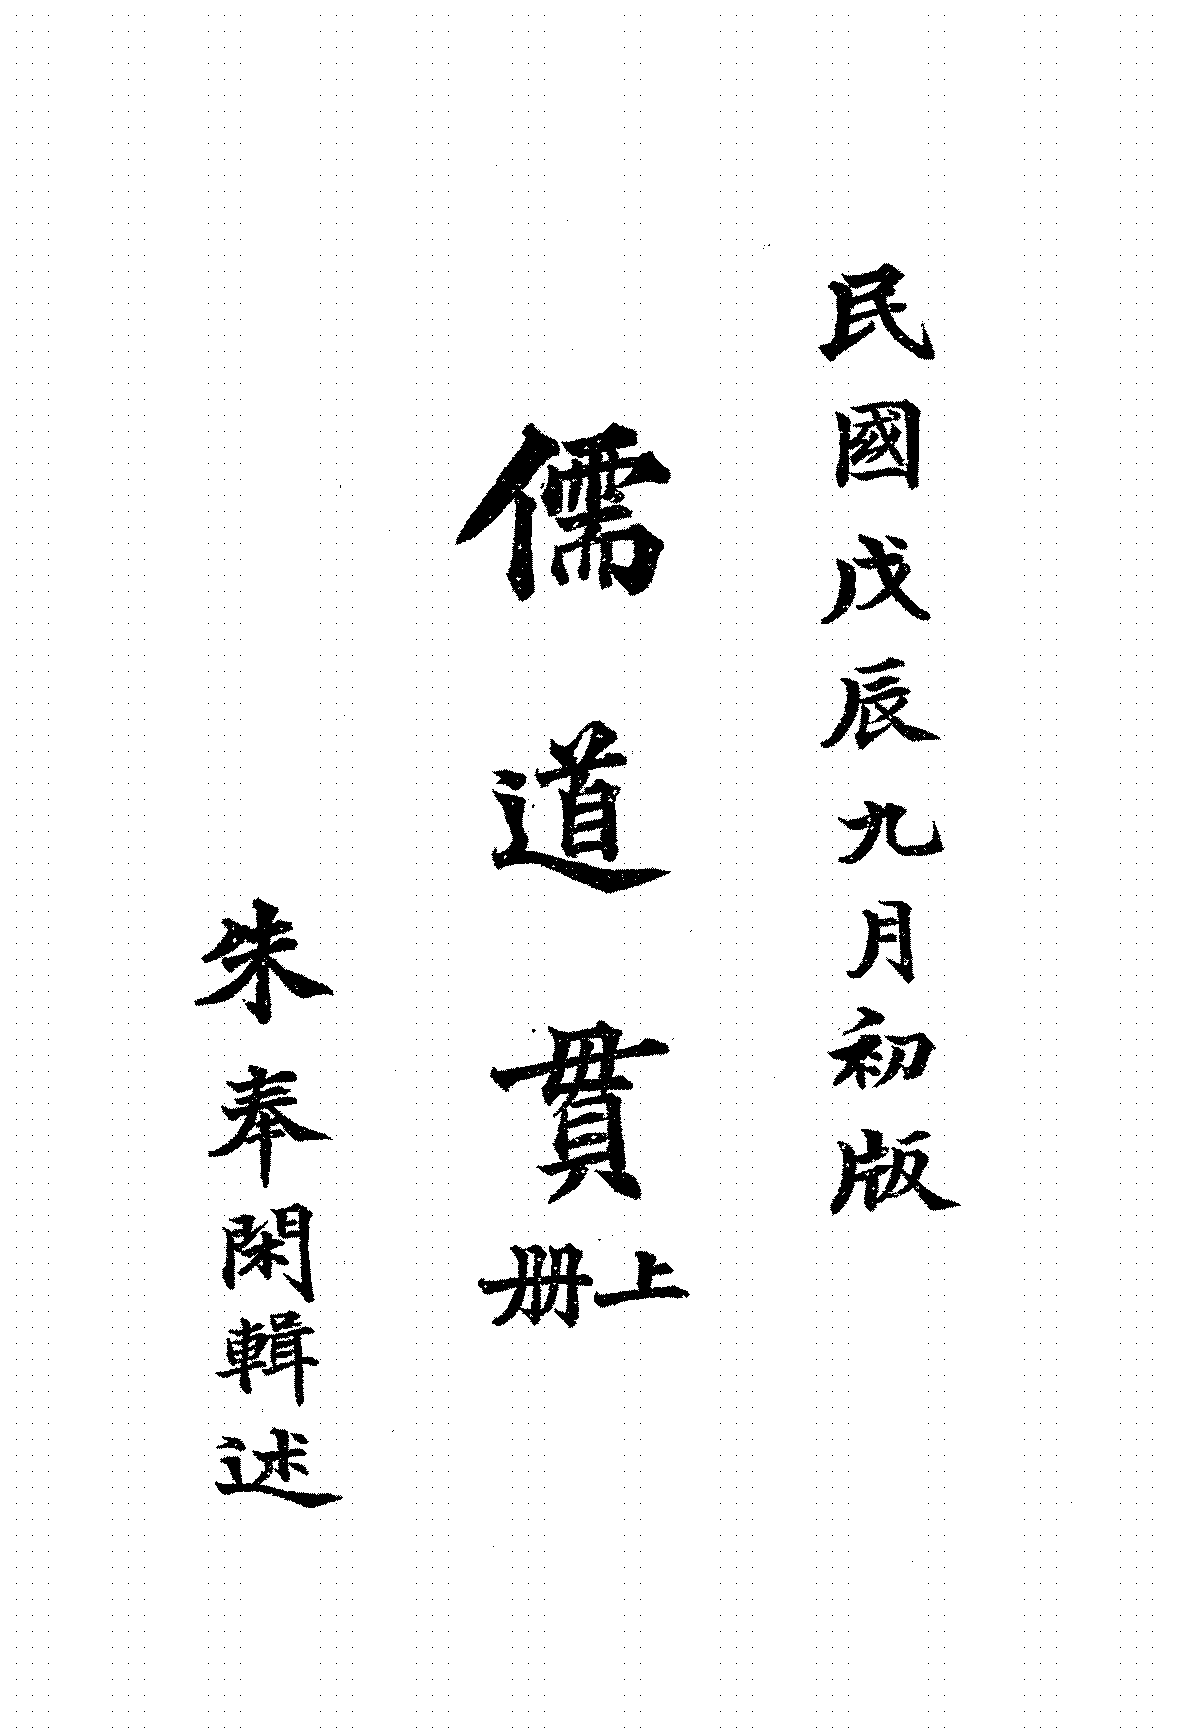 民國戊辰九月初版
儒道貫上册
朱奉閑輯述